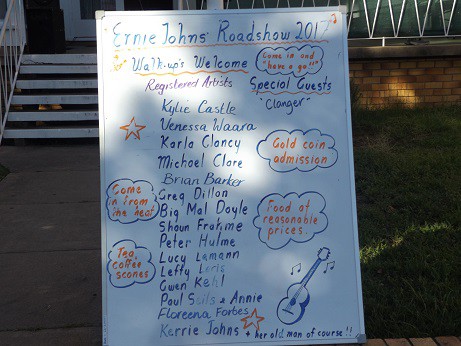 Ernie Johns Roadshow 2017
Walk-up's Welcome
Come in and
have a go"
Registered Artists
Special Guests
"Clanger"
Kylie Castle
Venessa Waara
Karla Clancy
Michael Clare
Gold coin
admission
Brian Barker
Greg Dillon
Big Mal Doyle
Shaun Fratime
Peter Hulme
Come
in from
the heat
Food at
reasonable
prices.
Lucy Lamann
Lefty
Gwen Kehl
Paul Suls & Annie
Floreena Forbes
Kerrie Johns + her old man of course!!
Tea,
coffee
scones